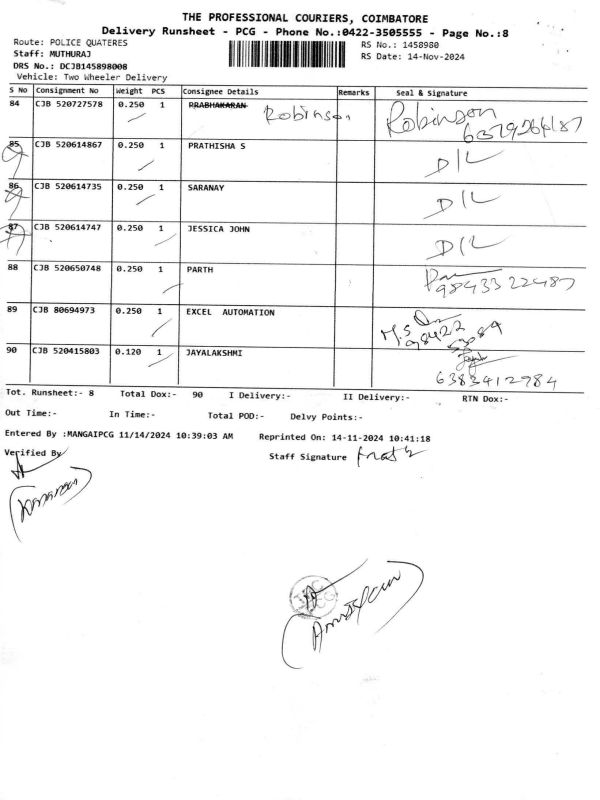 THE PROFESSIONAL COURIERS, COIMBATORE
Delivery Runsheet - PCG - Phone No.:0422-3505555 - Page No.:8
Route: POLICE QUATERES
RS No.: 1458980
Staff: MUTHURAJ
RS Date: 14-Nov-2024
DRS No.: DCJB145898008
Vehicle: Two Wheeler Delivery
S No Consignment No Weight PCS Consignee Details Remarks Seal & Signature
84 CJB 520727578 0.250 1 PRABHAKARAN Robinson Robinson
85 CJB 520614867 0.250 1 PRATHISHA S D/L
86 CJB 520614735 0.250 1 SARANAY D/L
87 CJB 520614747 0.250 1 JESSICA JOHN D/L
88 CJB 520650748 0.250 1 PARTH
9843322487
89 CJB 80694973 0.250 1 EXCEL AUTOMATION M.S
90 CJB 520415803 0.120 1 JAYALAKSHMI
6383412984
Tot. Runsheet:- 8 Total Dox:- 90 I Delivery:- II Delivery:- RTN Dox:-
Out Time:- In Time:- Total POD:- Delvy Points:-
Entered By :MANGAIPCG 11/14/2024 10:39:03 AM Reprinted On: 14-11-2024 10:41:18
Verified By
Staff Signature